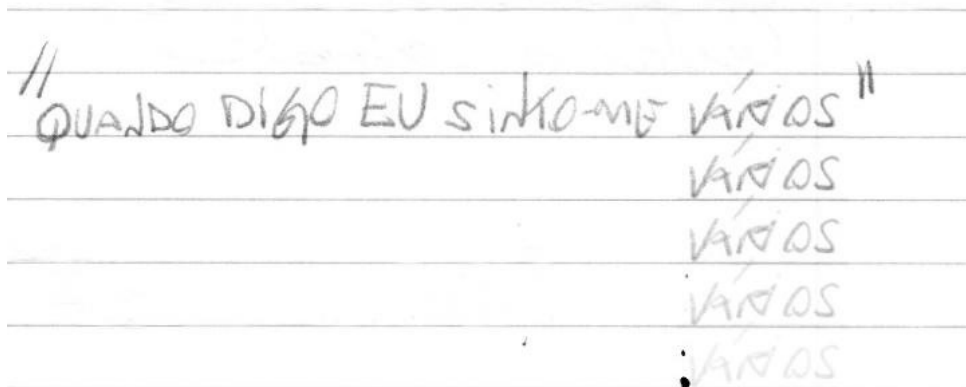 "QUANDO DIGO EU SINTO-ME VÁRIOS"
VÁRIOS
VÁRIOS
VÁRIOS
VÁRIOS